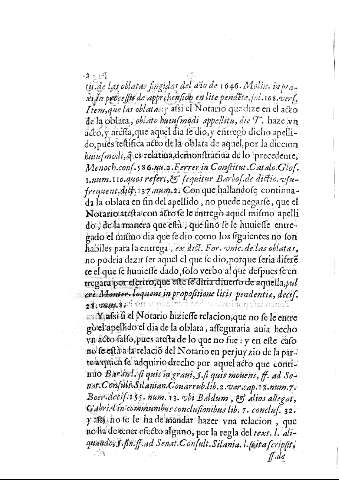 tit. de las oblatas fingidas del año de 1646. Molin. in pra-
xi in processu de apprehension en lite pendēte, fol. 168. vers.
Item, que las oblatas: y assi el Notario que dize en el acto
de la oblata, oblato huiusmodi appellitu, die T. haze vn
acto, y atesta, que aquel dia se dio, y entregò dicho apelli-
do, pues testifica acto de la oblata de aquel, por la diccion
huiusmodi, q̄ es relatiua, demonstratiua de lo precedente,
Menoch. cons. 586. nu. 2. Ferrer in Constitut. Catalo. Glos.
1. num. 110. quos refert, & sequitur Barbos. de dictio. vsu-
frequent. dict. 137. num. 2. Con que hallandose continua-
da la oblata en fin del apellido, no puede negarse, que el
Notario atesta con acto se le entregò aquel mismo apelli
do, de la manera que està, que sino se le huuiesse entre-
gado el mismo dia que se dio como los siguientes no son
habiles para la entrega, ex dict. For. vnic. de las oblatas,
no podria dezir ser aquel el que se dio, porque seria difere
te el que se huuiesse dado, solo verbo al que despues se en
tregara por escrito, que este se diria diuerso de aquella,
Monter. loquens in propositione litis prudentie, decis.
28. num. 8.
Y assi si el Notario hiziesse relacion, que no se le entre
gò el apellido el dia de la oblata, asseguraria auia hecho
vn acto falso, pues atesta de lo que no fue: y en este caso
no se està a la relaciō del Notario en perjuyzio de la par-
te a quien se adquirio drecho por aquel acto que conti-
nuò Bartul. si quis in graui, § si quis moriens, ff. ad Se-
nat. Consult. Silanian. Couarrub. lib. 2. var. cap. 13. num. 7.
Boer. decis. 155. num. 13. vbi Baldum, & alios allegat,
Gabriel in communibus conclusionibus lib. 7. conclus. 32.
y assi no se le ha de mandar hazer vna relacion, que
no ha de tener efecto alguno, por la regla del text. l. ali-
quando, § fin. ff. ad Senat. Consult. Silania. l.
ff. de